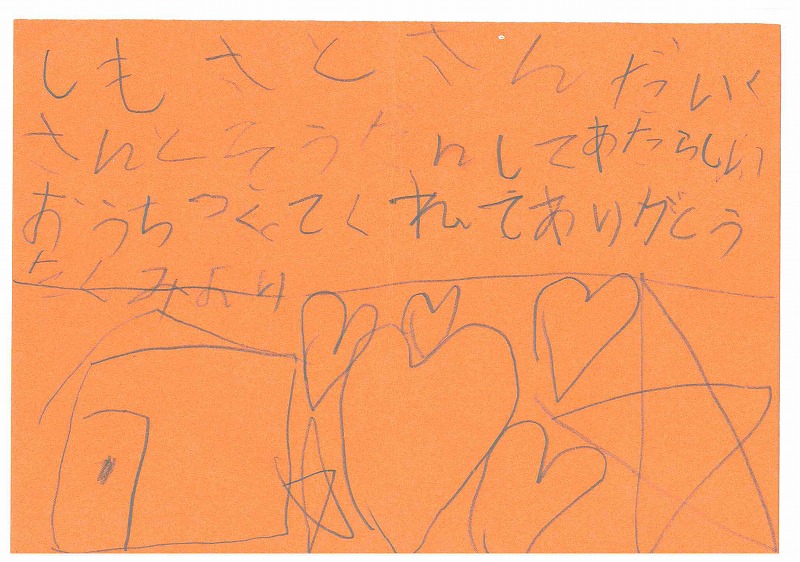 しもさとさん だいく
さんとそうだんしてあたらしい
おうちつくってくれてありがとう
たくみより